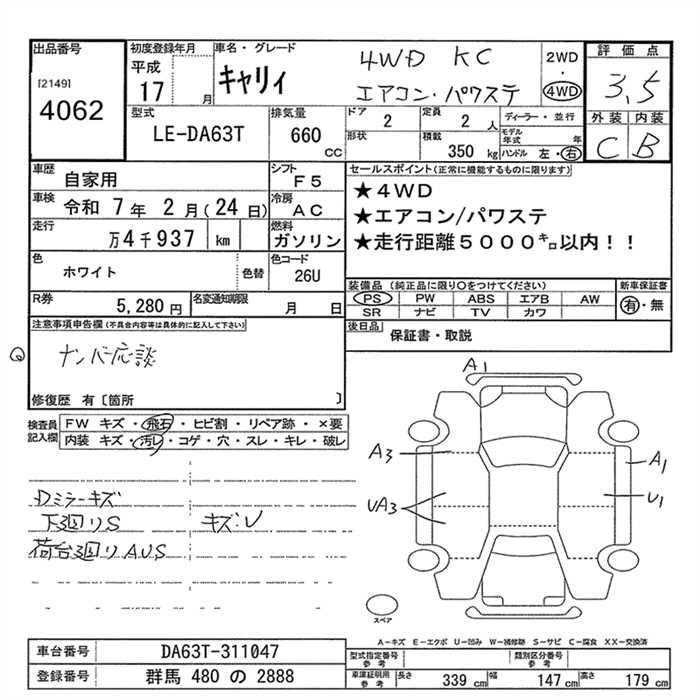 出品番号
[2149]
4062
初度登録年月
平成
17 月
車名・グレード
キャリィ
4WD KC
エアコン・パワステ
2WD
・
4WD
評価点
3.5
外装 内装
C B
型式
LE-DA63T
排気量
660 CC
ドア 2
定員 2 人
ディーラー・並行
形状
積載 350 kg
モデル年式 年
ハンドル 左・右
車歴
自家用
シフト
F5
車検
令和 7 年 2 月(24 日)
冷房
AC
走行
万4千937 km
燃料
ガソリン
色
ホワイト
色替
色コード
26U
セールスポイント(正常に機能するものに限ります)
★4WD
★エアコン/パワステ
★走行距離5000㌔以内!!
R券
5,280 円
名変通知期限
月 日
装備品(純正品に限り○をつけてください)
PS PW ABS エアB AW
SR ナビ TV カワ
新車保証書
有・無
後日品
保証書・取説
注意事項申告欄(不具合内容等は具体的に記入して下さい)
ナンバー応談
修復歴 有〔箇所 〕
検査員記入欄
FW キズ・飛石・ヒビ割・リペア跡・×要
内装 キズ・汚レ・コゲ・穴・スレ・キレ・破レ
Dミラーキズ
下廻りS キズU
荷台廻りAUS
A1
A3
A1
UA3
U1
スペア
A-キズ E-エクボ U-凹み W-補修跡 S-サビ C-腐食 XX-交換済
車台番号
DA63T-311047
登録番号
群馬 480 の 2888
型式指定番号
参考
類別区分番号
参考
車庫証明用
参考
長さ 339 cm
幅 147 cm
高さ 179 cm